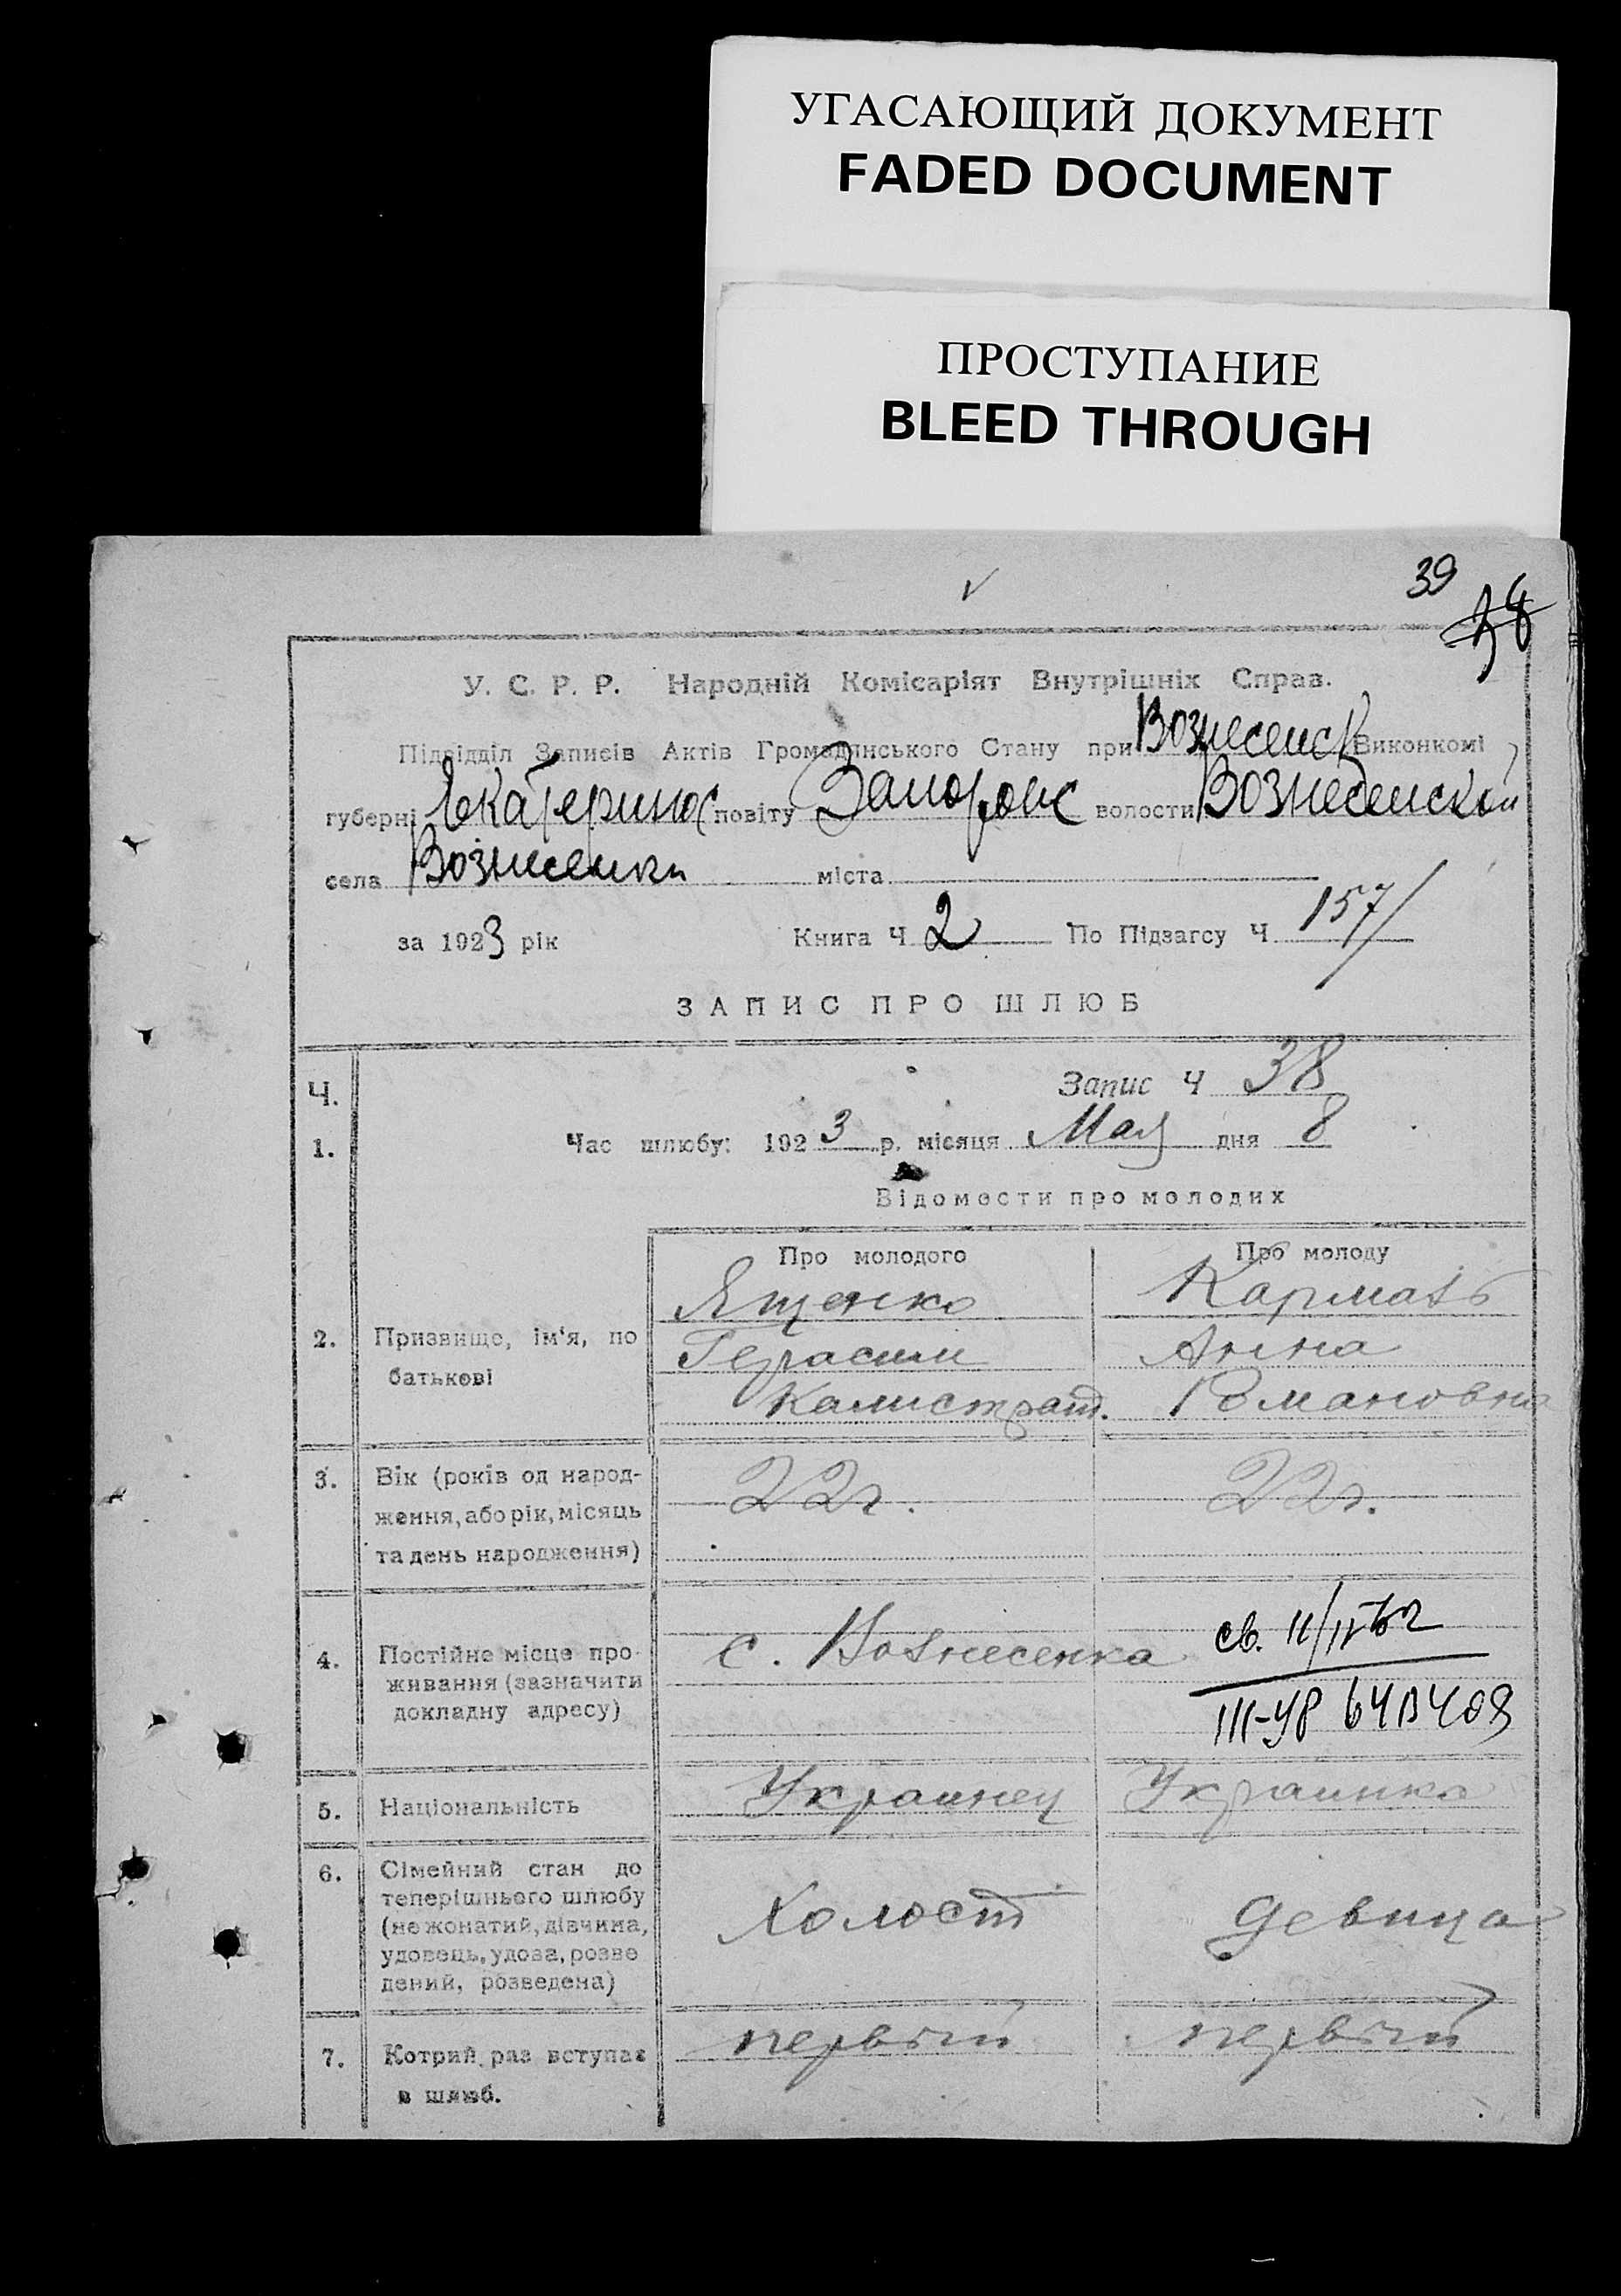 УГАСАЮЩИЙ ДОКУМЕНТ
FADED DOCUMENT
ПРОСТУПАНИЕ
BLEED THROUGH
39
38
У. С. Р. Р. Народній Комісаріят Внутрішніх Справ.
Підвідділ Записів Актів Громадянського Стану при Вознесенск Виконкомі
губерні Екатеринос повіту Запорожс волости Вознесенской
села Вознесенки міста
за 1923 рік Книга Ч 2 По Підзагсу Ч 157/
ЗАПИС ПРО ШЛЮБ
Ч. Запис Ч 38
1. Час шлюбу: 1923 р. місяця Мая дня 8
Відомости про молодих
Про молодого Про молоду
Ященко Кармазь
2. Призвище, ім'я, по Герасим Анна
батькові Калистрат. Романовна
3. Вік (років од народ- 22г. 22г.
ження, або рік, місяць
та день народження)
4. Постійне місце про- с. Вознесенка св. 11/
живання (зазначити
докладну адресу) III-УР
5. Національність Украинец Украинка
6. Сімейний стан до
теперішнього шлюбу
(не жонатий, дівчина, Холост девица
удовець, удова, розве
дений, розведена)
7. Котрий раз вступає первый первый
в шлюб.